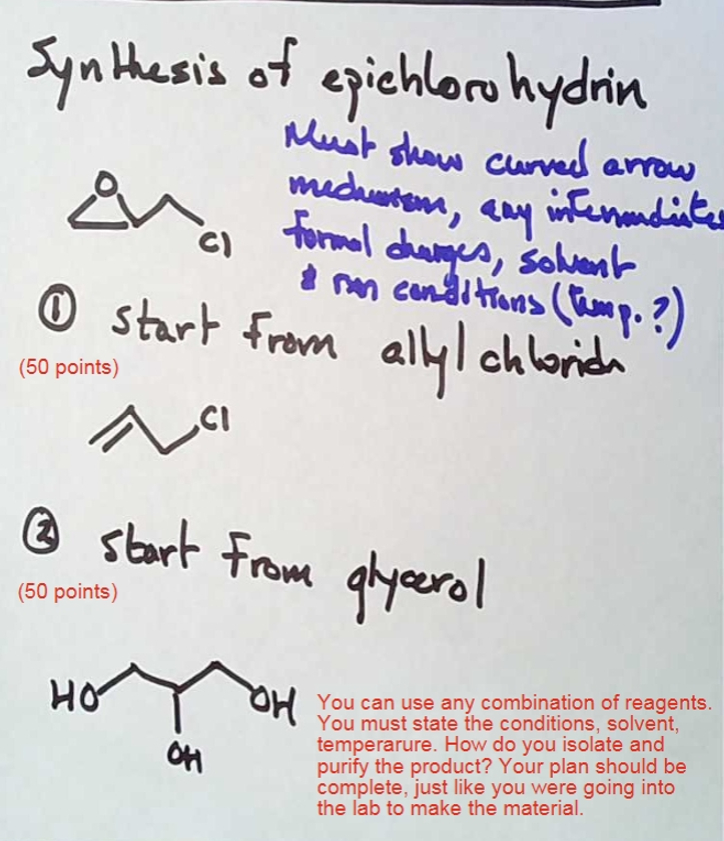 Synthesis of epichlorohydrin
Must show curved arrow
mechanism, any intermediates
formal charges, solvent
& rxn conditions (temp.?)
O
Cl
① start from allyl chloride
(50 points)
Cl
② start from glycerol
(50 points)
HO
OH
OH
You can use any combination of reagents.
You must state the conditions, solvent,
temperarure. How do you isolate and
purify the product? Your plan should be
complete, just like you were going into
the lab to make the material.